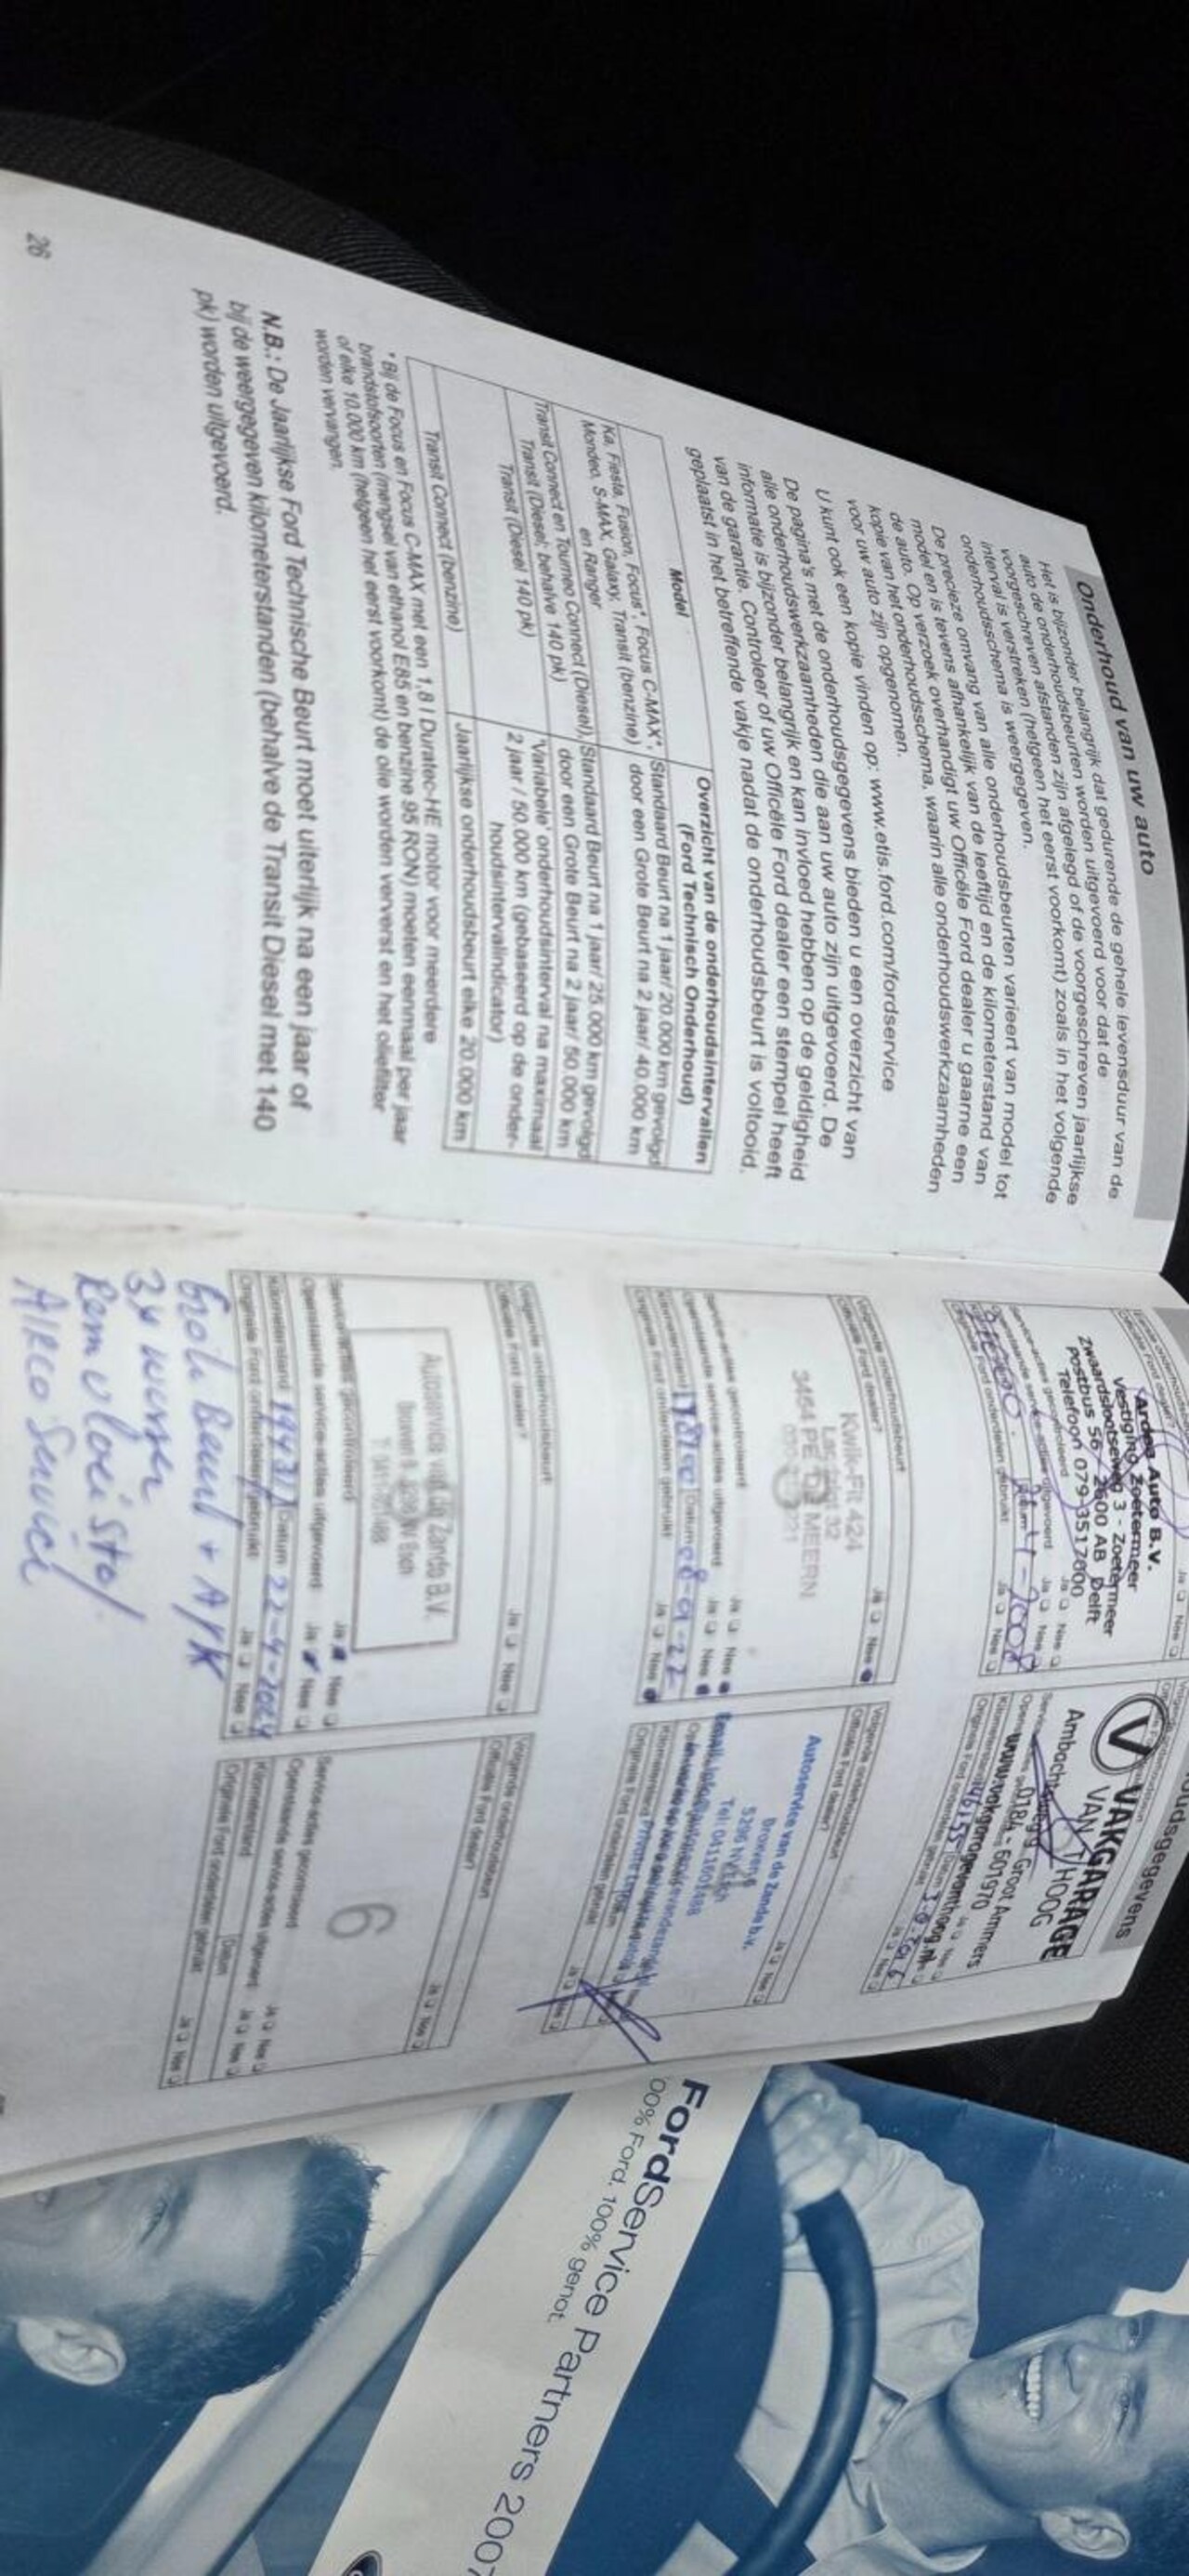 Onderhoud van uw auto
Het is bijzonder belangrijk dat gedurende de gehele levensduur van de
auto de onderhoudsbeurten worden uitgevoerd voor dat de
voorgeschreven afstanden zijn afgelegd of de voorgeschreven jaarlijkse
interval is verstreken (hetgeen het eerst voorkomt) zoals in het volgende
onderhoudsschema is weergegeven.
De precieze omvang van alle onderhoudsbeurten varieert van model tot
model en is tevens afhankelijk van de leeftijd en de kilometerstand van
de auto. Op verzoek overhandigt uw Officiële Ford dealer u gaarne een
kopie van het onderhoudsschema, waarin alle onderhoudswerkzaamheden
voor uw auto zijn opgenomen.
U kunt ook een kopie vinden op: www.etis.ford.com/fordservice
De pagina's met de onderhoudsgegevens bieden u een overzicht van
alle onderhoudswerkzaamheden die aan uw auto zijn uitgevoerd. De
informatie is bijzonder belangrijk en kan invloed hebben op de geldigheid
van de garantie. Controleer of uw Officiële Ford dealer een stempel heeft
geplaatst in het betreffende vakje nadat de onderhoudsbeurt is voltooid.
Model
Overzicht van de onderhoudsintervallen
(Ford Technisch Onderhoud)
Ka, Fiesta, Fusion, Focus*, Focus C-MAX*,
Mondeo, S-MAX, Galaxy, Transit (benzine)
en Ranger
Standaard Beurt na 1 jaar/ 20.000 km gevolgd
door een Grote Beurt na 2 jaar/ 40.000 km
Transit Connect en Tourneo Connect (Diesel),
Transit (Diesel, behalve 140 pk)
Standaard Beurt na 1 jaar/ 25.000 km gevolgd
door een Grote Beurt na 2 jaar/ 50.000 km
Transit (Diesel 140 pk)
'Variabele' onderhoudsinterval na maximaal
2 jaar / 50.000 km (gebaseerd op de onder-
houdsintervalindicator)
Transit Connect (benzine)
Jaarlijkse onderhoudsbeurt elke 20.000 km
* Bij de Focus en Focus C-MAX met een 1,8 l Duratec-HE motor voor meerdere
brandstofsoorten (mengsel van ethanol E85 en benzine 95 RON) moeten eenmaal per jaar
of elke 10.000 km (hetgeen het eerst voorkomt) de olie worden ververst en het oliefilter
worden vervangen.
N.B.: De Jaarlijkse Ford Technische Beurt moet uiterlijk na een jaar of
bij de weergegeven kilometerstanden (behalve de Transit Diesel met 140
pk) worden uitgevoerd.
26
Ardea Auto B.V.
Vestiging Zoetermeer
Zwaardslootseweg 3 - Zoetermeer
Postbus 56 / 2600 AB Delft
Telefoon 079-3517000
Ja Nee
2008
VAKGARAGE
VAN 'T HOOG
Groot Ammers
0184 - 601970
www.vakgaragevanthoog.nl
Volgende onderhoudsbeurt
Officiële Ford dealer? Ja Nee
Kwik-Fit 424
3454 PE DE MEERN
Service-acties gecontroleerd Ja Nee
Openstaande service-acties uitgevoerd Ja Nee
Kilometerstand Datum 8-9-22
Originele Ford onderdelen gebruikt Ja Nee
Volgende onderhoudsbeurt
Officiële Ford dealer? Ja Nee
Autoservice van de Zande b.v.
Volgende onderhoudsbeurt
Officiële Ford dealer? Ja Nee
Autoservice van de Zande B.V.
Service-acties gecontroleerd Ja Nee
Openstaande service-acties uitgevoerd Ja Nee
Kilometerstand 199431 Datum 22-4-2024
Originele Ford onderdelen gebruikt Ja Nee
Grote Beurt + APK
3x wisser
Remvloeistof
AIRCO Service
Volgende onderhoudsbeurt
Officiële Ford dealer? Ja Nee
6
Service-acties gecontroleerd Ja Nee
Openstaande service-acties uitgevoerd Ja Nee
Kilometerstand Datum
Originele Ford onderdelen gebruikt Ja Nee
FordService Partners 2007
00% Ford. 100% genot.